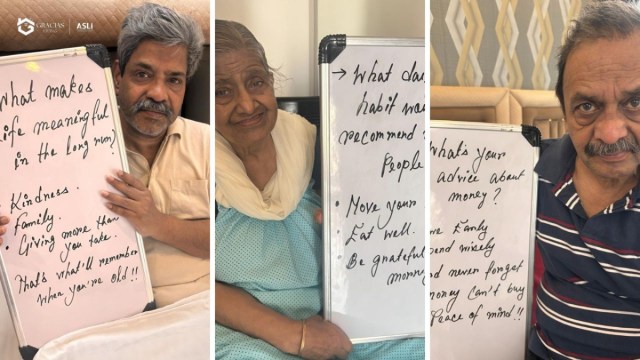 GRACIAS
LIVING
ASLI
What makes
life meaningful
in the long run?
• Kindness.
• Family.
• Giving more than
you take.
That's what'll remember
when you're old!!
→ What
habit
recommend
People
• Move your
• Eat well.
• Be grateful
What's your
advice about
money?
Early
wisely
never forget
money can't buy
Peace of mind!!